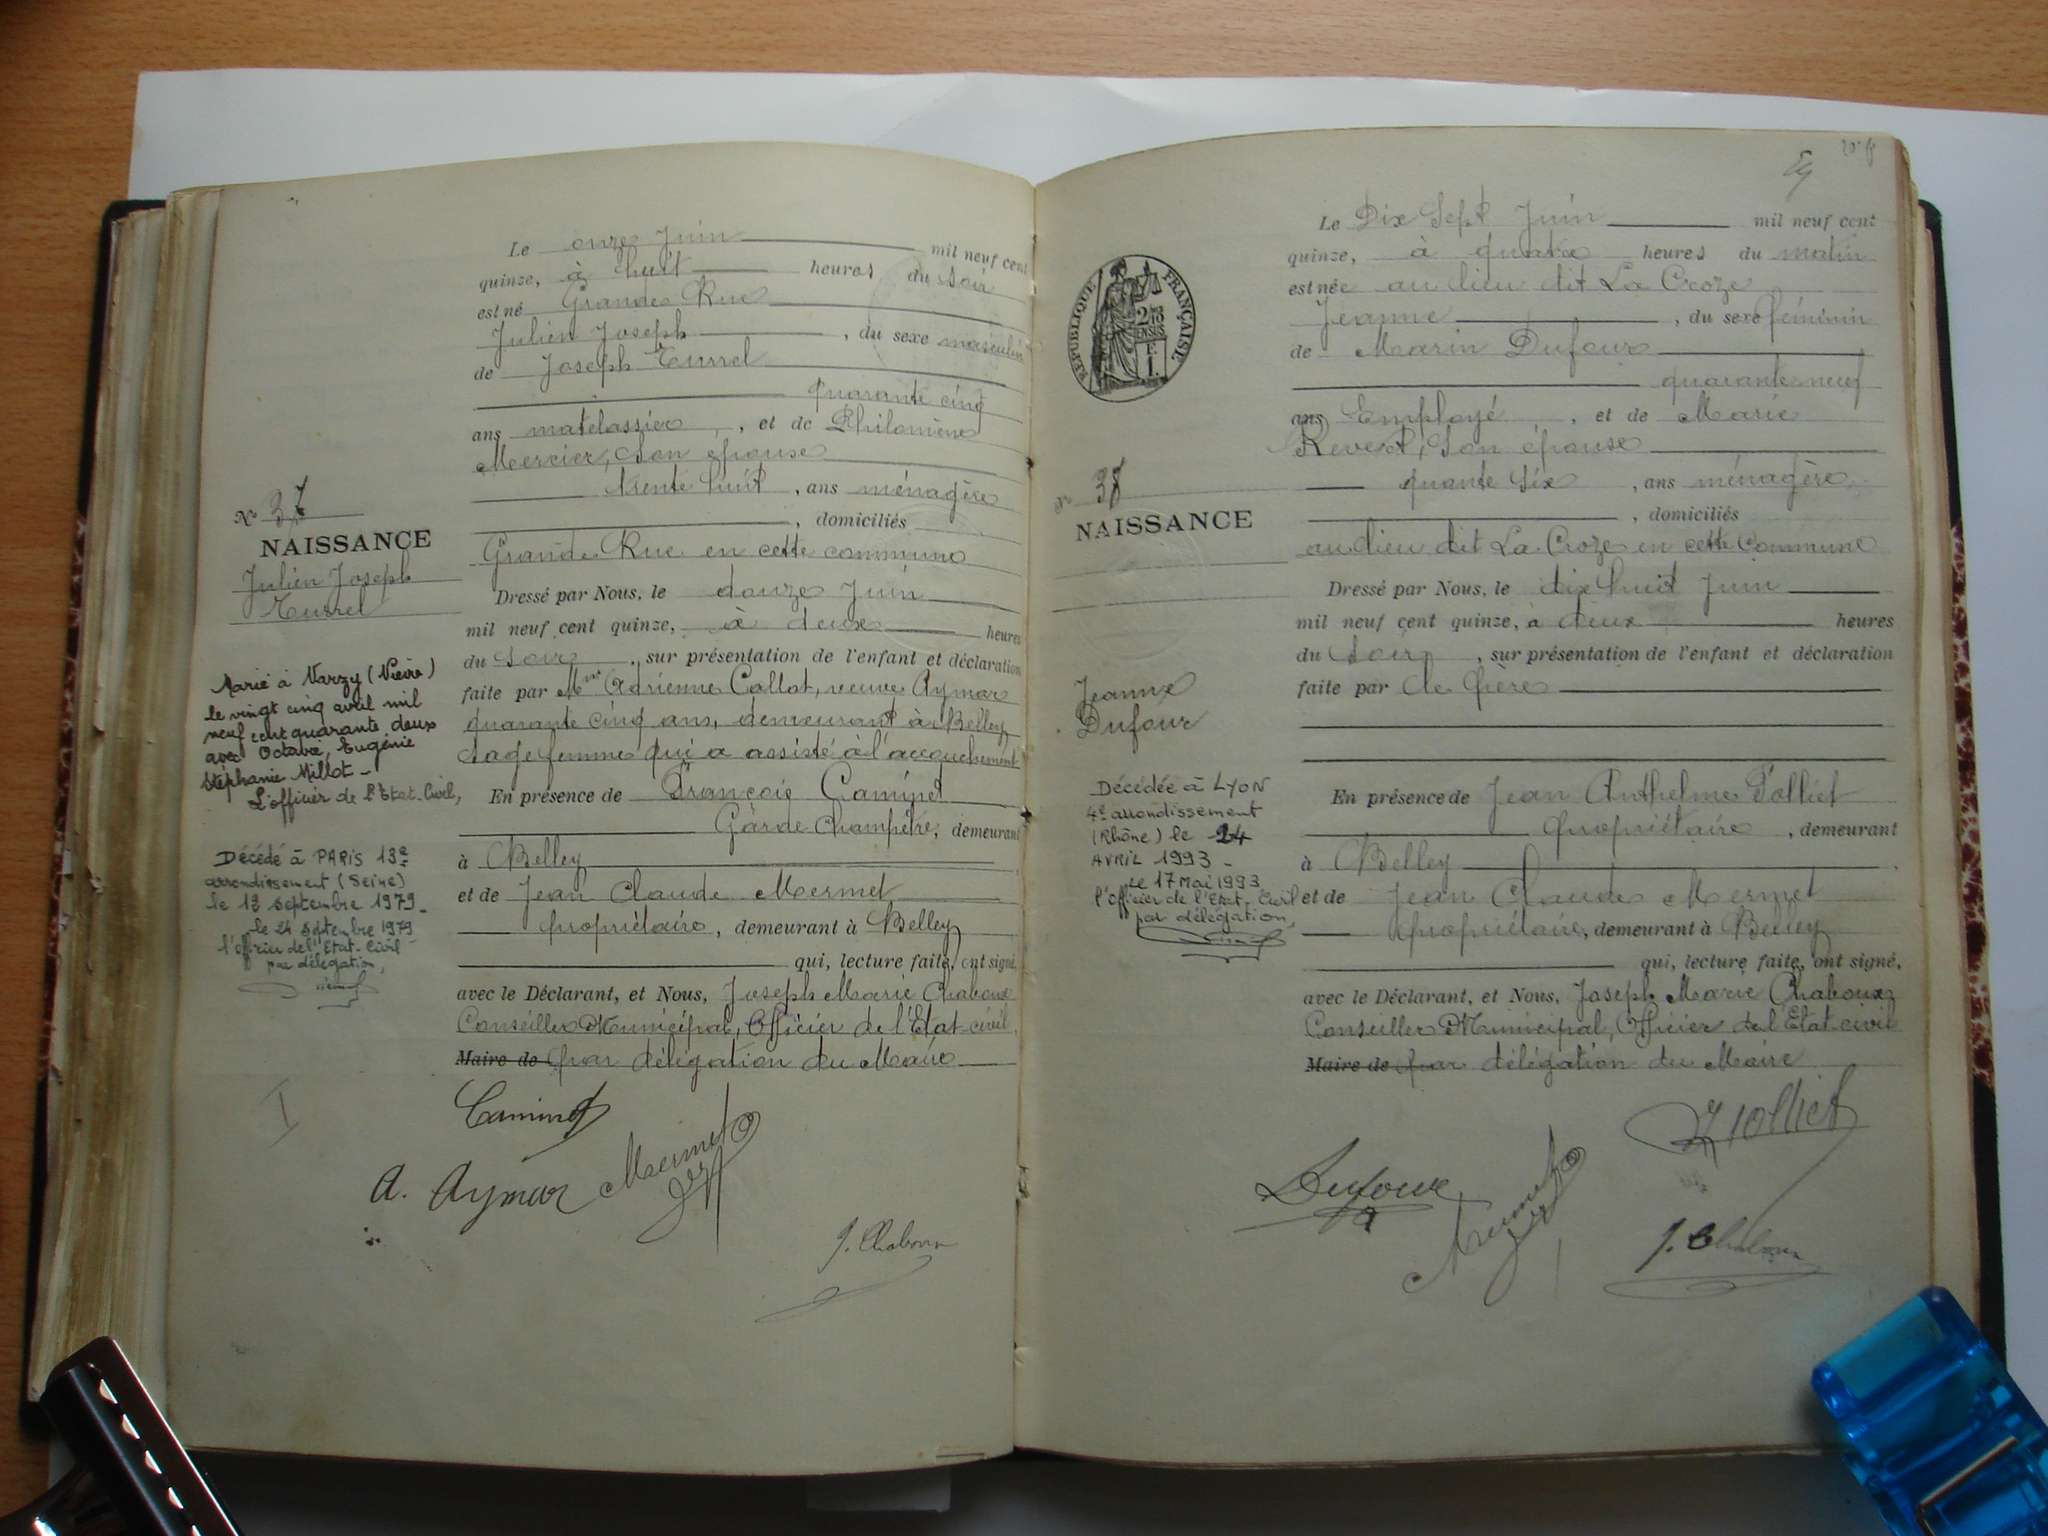 Le onze Juin mil neuf cent
quinze, à huit heures du soir
est né Grande Rue
Julien Joseph, du sexe masculin
de Joseph Turrel
quarante cinq
ans matelassier, et de Philomène
Mercier, son épouse
trente huit, ans ménagère
, domiciliés
Grande Rue en cette commune
Dressé par Nous, le douze Juin
mil neuf cent quinze, à deux heures
du soir, sur présentation de l'enfant et déclaration
faite par Mme Adrienne Callot, veuve Aymar
quarante cinq ans, demeurant à Belley
sage femme qui a assisté à l'accouchement
En présence de François Caminet
Garde Champêtre, demeurant
à Belley
et de Jean Claude Mermet
propriétaire, demeurant à Belley
qui, lecture faite, ont signé,
avec le Déclarant, et Nous, Joseph Marie Chaboux
Conseiller Municipal, Officier de l'Etat-civil
Maire de par délégation du Maire
Caminet
A. Aymar Mermet
J. Chaboux
No 37
NAISSANCE
Julien Joseph
Turrel
Marié à Varzy (Nièvre)
le vingt cinq avril mil
neuf cent quarante deux
avec Octavie, Eugénie
Stéphanie Millot -
L'officier de l'Etat-Civil,
Décédé à PARIS 13e
arrondissement (Seine)
le 13 septembre 1979 -
le 24 septembre 1979
l'officier de l'Etat-Civil
par délégation,
I
Le Dix Sept Juin mil neuf cent
quinze, à quatre heures du matin
est née au lieu dit La Croze
Jeanne, du sexe féminin
de Marin Dufour
quarante neuf
ans Employé, et de Marie
Reverd, son épouse
quante six, ans ménagère,
, domiciliés
au lieu dit La Croze en cette commune
Dressé par Nous, le dix huit Juin
mil neuf cent quinze, à deux heures
du soir, sur présentation de l'enfant et déclaration
faite par le père
En présence de Jean Anthelme Jolliet
propriétaire, demeurant
à Belley
et de Jean Claude Mermet
propriétaire, demeurant à Belley
qui, lecture faite, ont signé,
avec le Déclarant, et Nous, Joseph Marie Chaboux
Conseiller Municipal, Officier de l'Etat civil
Maire de par délégation du Maire
Jolliet
Dufour Mermet
J. Chaboux
RÉPUBLIQUE FRANÇAISE
No 38
NAISSANCE
Jeanne
Dufour
Décédée à LYON
4e arrondissement
(Rhône) le 24
AVRIL 1993 -
Le 17 Mai 1993
l'officier de l'Etat-Civil
par délégation,